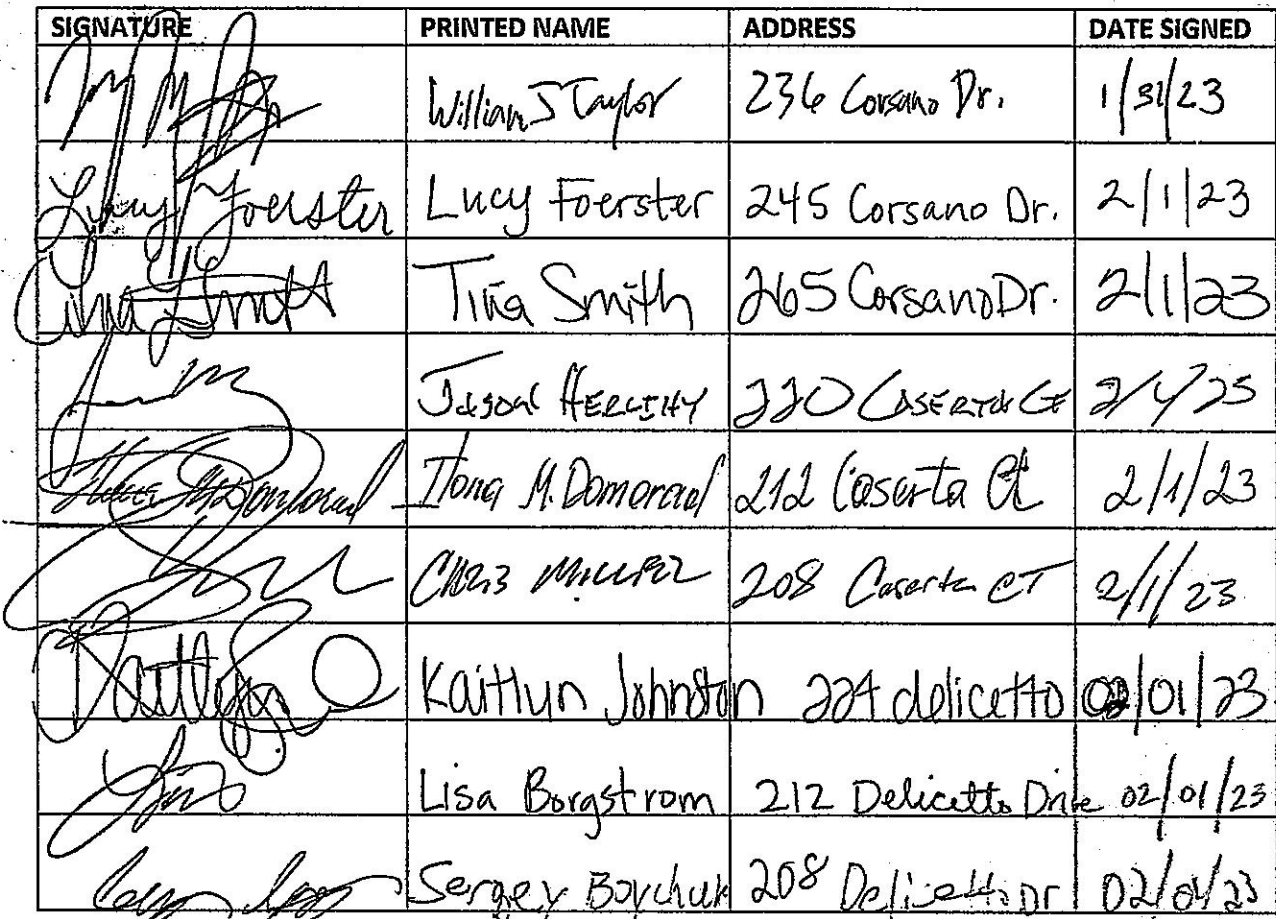 SIGNATURE PRINTED NAME ADDRESS DATE SIGNED
William J Taylor 236 Corsano Dr. 1/31/23
Lucy Foerster Lucy Foerster 245 Corsano Dr. 2/1/23
Tina Smith Tina Smith 265 Corsano Dr. 2/1/23
Jason HERLIHY 220 CASERTA Ct
Ilona M. Domorad 212 Caserta Ct 2/1/23
208 Caserta CT 2/1/23
Kaitlyn Johnston 224 delicetto 02/01/23
Lisa Borgstrom 212 Delicetto Drive 02/01/23
Sergey Boychuk 208 Delicetto Dr